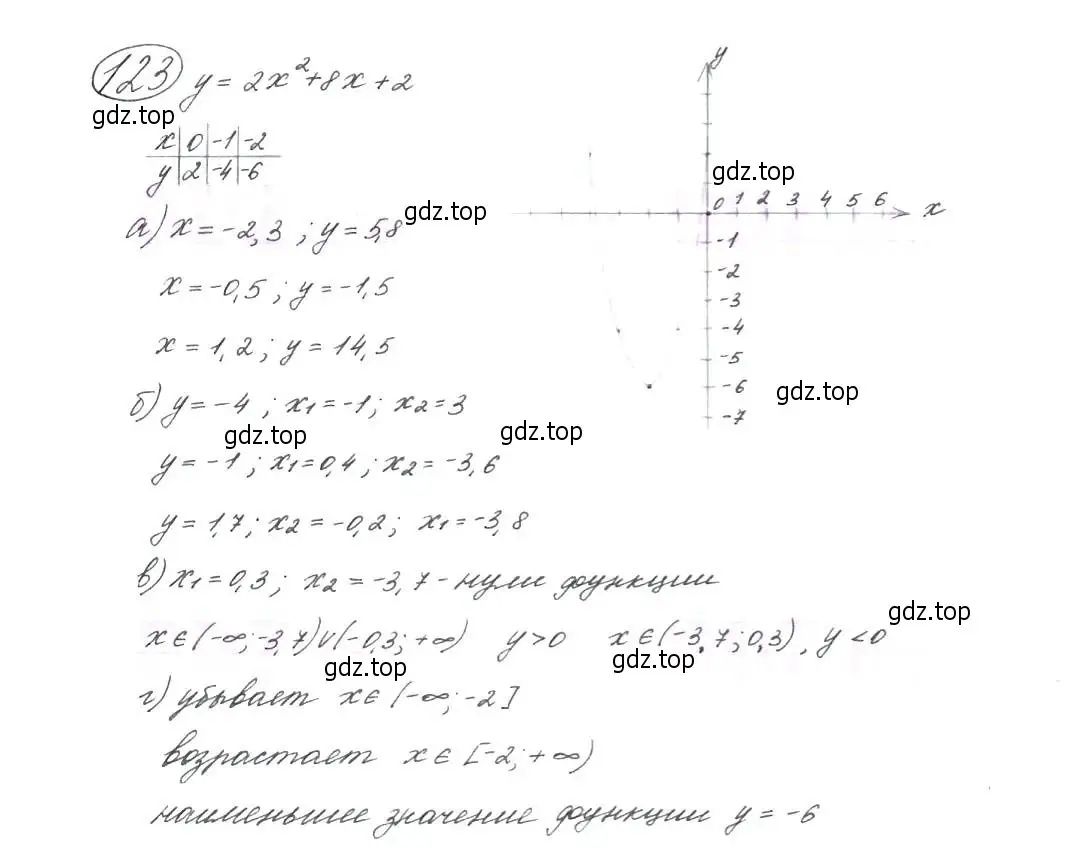 123 y = 2x²+8x+2
gdz.top
x 0 -1 -2
y 2 -4 -6
gdz.top
а) x = -2,3 ; y = 5,8
x = -0,5 ; y = -1,5
x = 1,2 ; y = 14,5
б) y = -4 ; x₁ = -1 ; x₂ = 3
gdz.top
gdz.top
y = -1 ; x₁ = 0,4 ; x₂ = -3,6
y = 1,7 ; x₂ = -0,2 ; x₁ = -3,8
в) x₁ = 0,3 ; x₂ = -3,7 - нули функции
x ∈ (-∞; -3,7) ∪ (-0,3; +∞) y > 0 x ∈ (-3,7; 0,3), y < 0
gdz.top
gdz.top
gdz.top
г) убывает x ∈ (-∞; -2]
возрастает x ∈ [-2; +∞)
наименьшее значение функции y = -6
y
gdz.top
0 1 2 3 4 5 6 x
-1
-2
-3
-4
-5
-6
gdz.top
-7